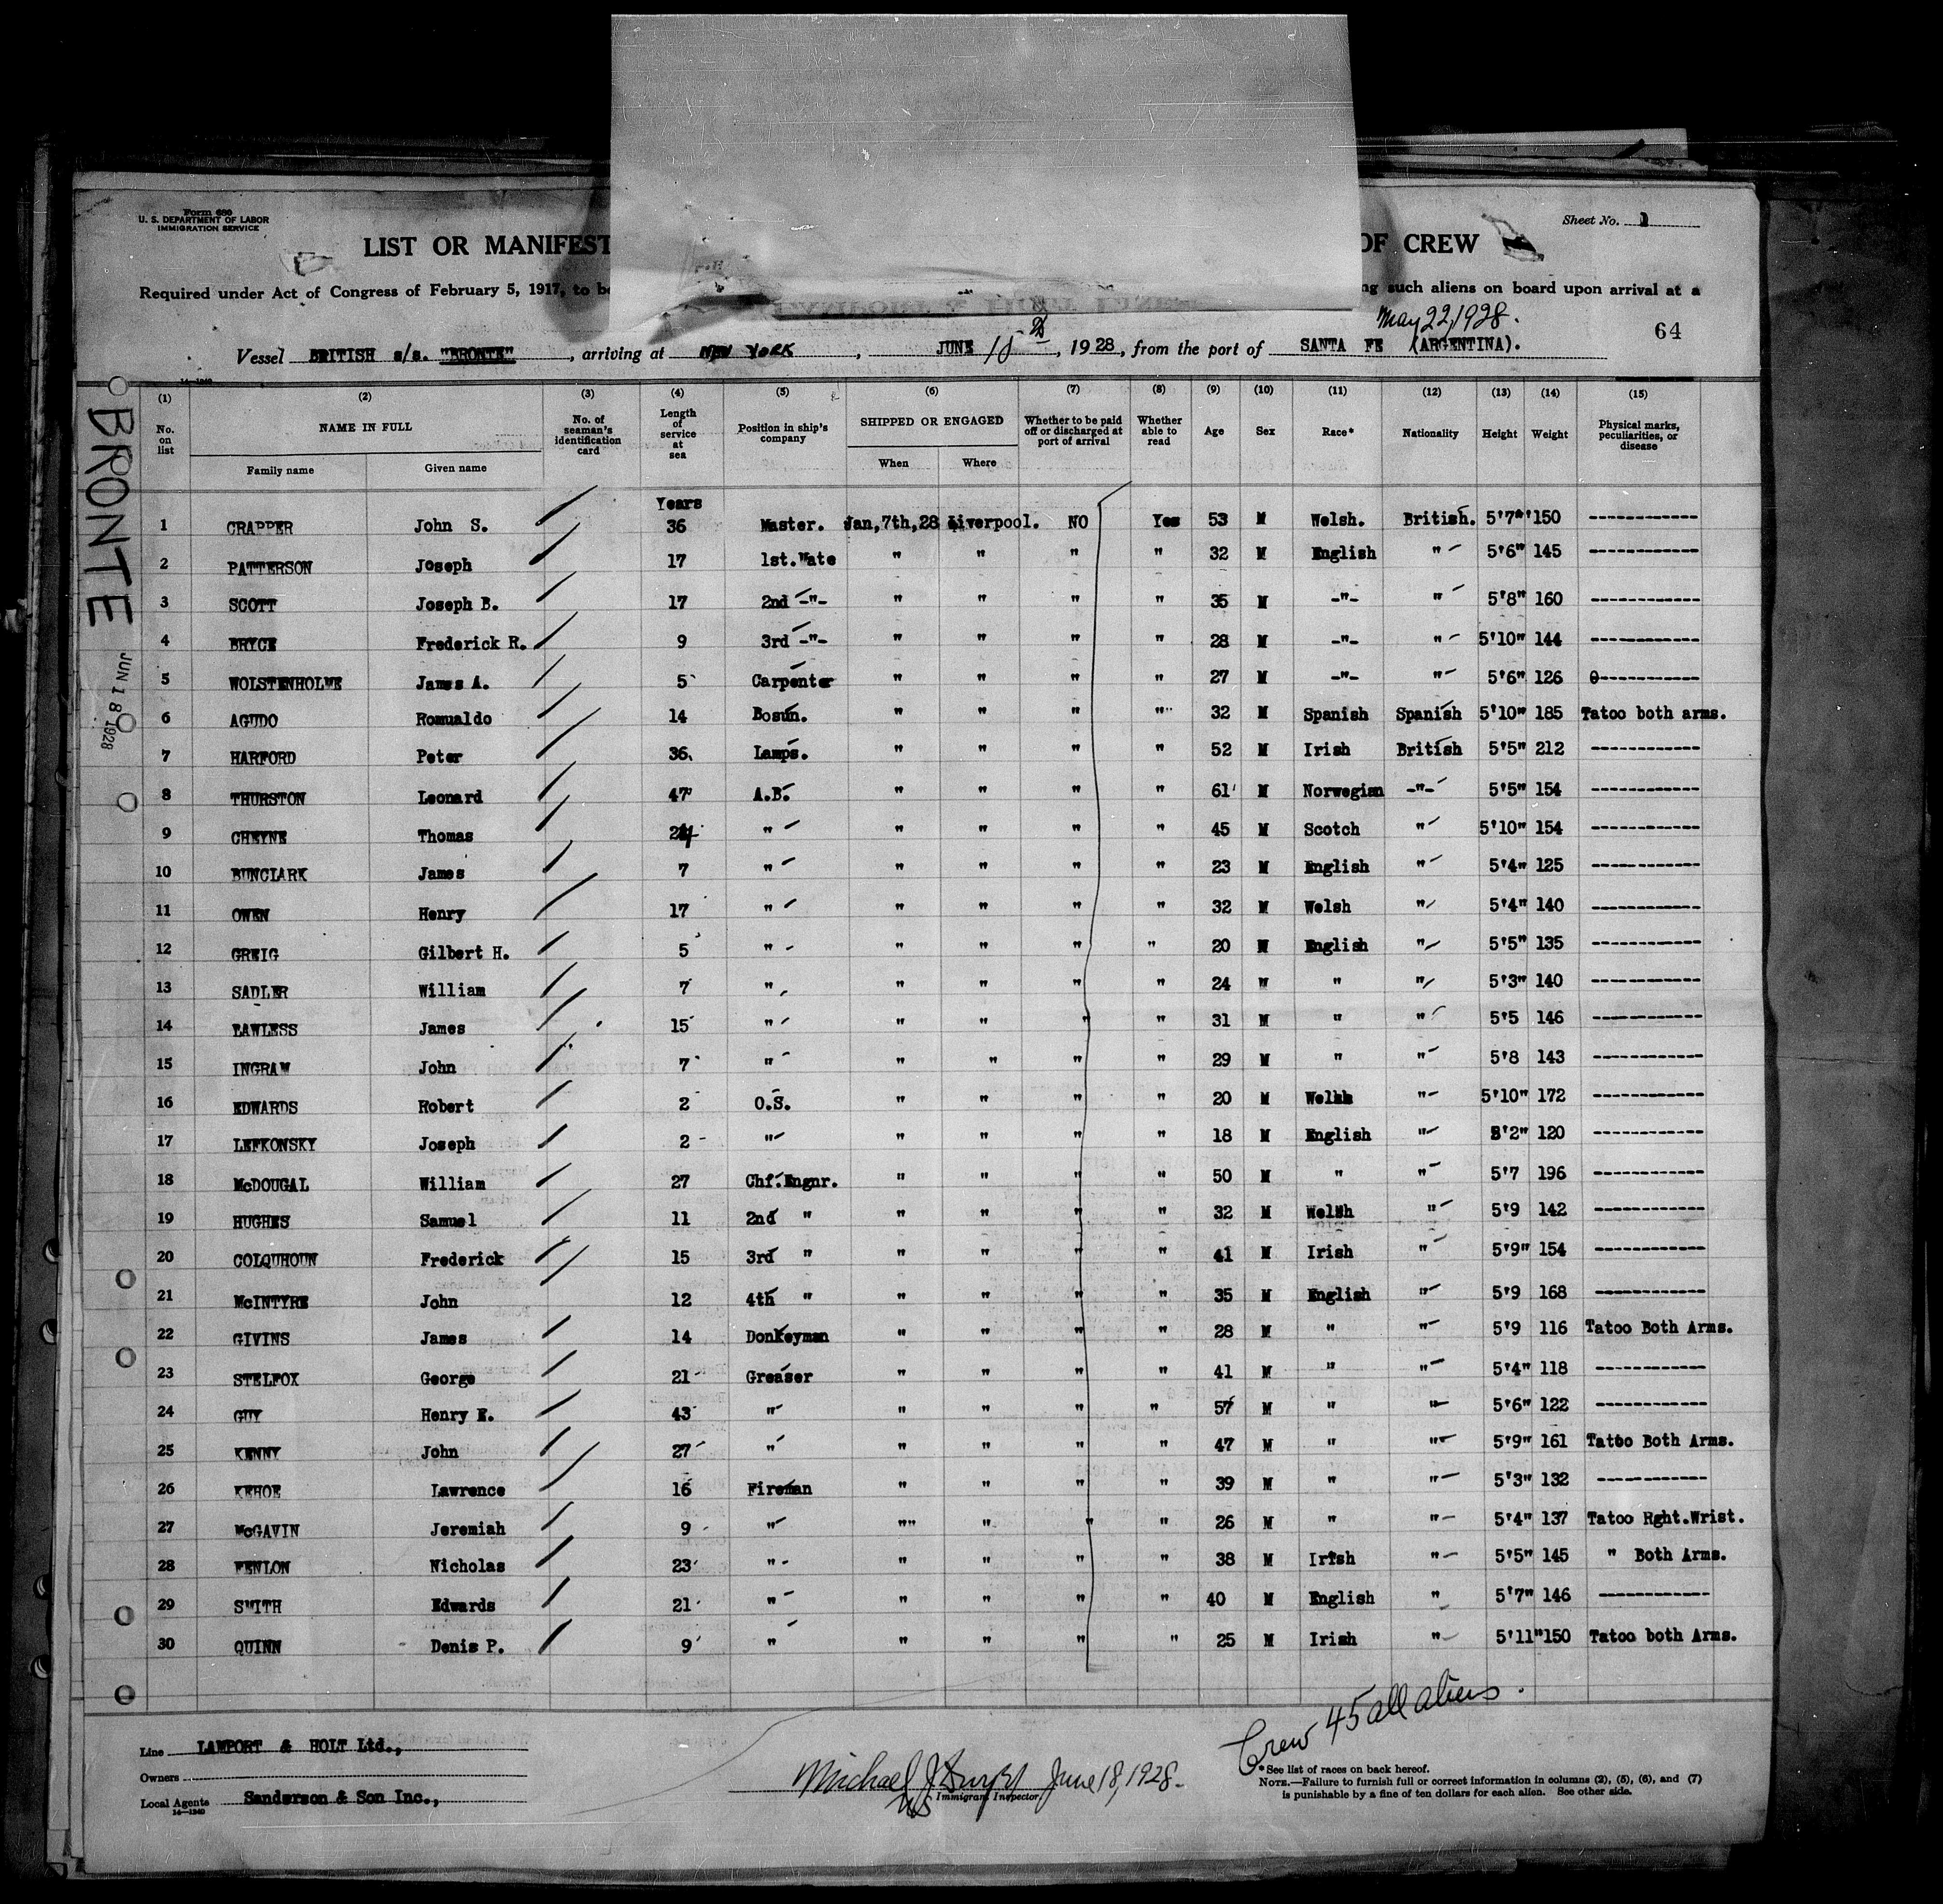 Form 680
U. S. DEPARTMENT OF LABOR
IMMIGRATION SERVICE
Sheet No. 1
LIST OR MANIFEST OF CREW
Required under Act of Congress of February 5, 1917, to be ng such aliens on board upon arrival at a
May 22, 1928.
64
Vessel BRITISH s/s. "BRONTE", arriving at NEW YORK, JUNE 18th, 1928, from the port of SANTA FE (ARGENTINA).
14-1240
BRONTE
JUN 18 1928
(1) (2) (3) (4) (5) (6) (7) (8) (9) (10) (11) (12) (13) (14) (15)
No. on list NAME IN FULL Family name Given name No. of seaman's identification card Length of service at sea Position in ship's company SHIPPED OR ENGAGED When Where Whether to be paid off or discharged at port of arrival Whether able to read Age Sex Race* Nationality Height Weight Physical marks, peculiarities, or disease
Years
1 CRAPPER John S. 36 Master. Jan,7th,28 Liverpool. NO Yes 53 M Welsh. British. 5'7" 150 ------------
2 PATTERSON Joseph 17 1st.Mate " " " " 32 M English " 5'6" 145 ------------
3 SCOTT Joseph B. 17 2nd -"- " " " " 35 M -"- " 5'8" 160 ------------
4 BRYCE Frederick R. 9 3rd -"- " " " " 28 M -"- " 5'10" 144 ------------
5 WOLSTENHOLME James A. 5 Carpenter " " " " 27 M -"- " 5'6" 126 ------------
6 AGUDO Romualdo 14 Bosun. " " " " 32 M Spanish Spanish 5'10" 185 Tatoo both arms.
7 HARFORD Peter 36 Lamps. " " " " 52 M Irish British 5'5" 212 ------------
8 THURSTON Leonard 47 A.B. " " " " 61 M Norwegian -"- 5'5" 154 ------------
9 CHEYNE Thomas 24 " " " " " 45 M Scotch " 5'10" 154 ------------
10 BUNCLARK James 7 " " " " " 23 M English " 5'4" 125 ------------
11 OWEN Henry 17 " " " " " 32 M Welsh " 5'4" 140 ------------
12 GREIG Gilbert H. 5 " " " " " 20 M English " 5'5" 135 ------------
13 SADLER William 7 " " " " " 24 M " " 5'3" 140 ------------
14 LAWLESS James 15 " " " " " 31 M " " 5'5 146 ------------
15 INGRAM John 7 " " " " " 29 M " " 5'8 143 ------------
16 EDWARDS Robert 2 O.S. " " " " 20 M Welsh " 5'10" 172 ------------
17 LEFKONSKY Joseph 2 " " " " " 18 M English " 5'2" 120 ------------
18 McDOUGAL William 27 Chf.Engnr. " " " " 50 M " " 5'7 196 ------------
19 HUGHES Samuel 11 2nd " " " " " 32 M Welsh " 5'9 142 ------------
20 COLQUHOUN Frederick 15 3rd " " " " " 41 M Irish " 5'9" 154 ------------
21 McINTYRE John 12 4th " " " " " 35 M English " 5'9 168 ------------
22 GIVINS James 14 Donkeyman " " " " 28 M " " 5'9 116 Tatoo Both Arms.
23 STELFOX George 21 Greaser " " " " 41 M " " 5'4" 118 ------------
24 GUY Henry E. 43 " " " " " 57 M " " 5'6" 122 ------------
25 KENNY John 27 " " " " " 47 M " " 5'9" 161 Tatoo Both Arms.
26 KEHOE Lawrence 16 Fireman " " " " 39 M " " 5'3" 132 ------------
27 McGAVIN Jeremiah 9 " "" " " " 26 M " " 5'4" 137 Tatoo Rght.Wrist.
28 FENLON Nicholas 23 " " " " " 38 M Irish " 5'5" 145 " Both Arms.
29 SMITH Edwards 21 " " " " " 40 M English " 5'7" 146 ------------
30 QUINN Denis P. 9 " " " " " 25 M Irish " 5'11" 150 Tatoo both Arms.
Crew 45 all aliens.
Line LAMPORT & HOLT Ltd.,
Owners
Local Agents Sanderson & Son Inc.,
14-1240
Michael J June 18, 1928.
Immigrant Inspector
*See list of races on back hereof.
NOTE.—Failure to furnish full or correct information in columns (2), (5), (6), and (7)
is punishable by a fine of ten dollars for each alien. See other side.